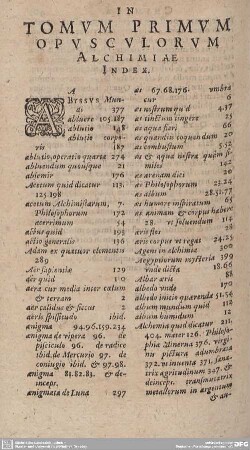 IN
TOMVM PRIMVM
OPVSCVLORVM
ALCHIMIAE
INDEX.
A
ABYSSVS Mundi 377
abluere 105.187
ablutio 148
ablutio corporis 187
ablutio, operatio quarta 274
ablutionis 21
abiicemir 176
Acetum quid dicatur 113.
125.198
acetum Alchimistarum,
Philosophorum 172
acerrimum 14
acibus quid 195
actio generalis 136
Adam ex quatuor elementis
289
Aër sapientiæ 129
aër quid 10
aera cur media inter cœlum
& terram 2
aer calidus & siccus 2
aeris spissitudo ibid.
ænigma 94.96.159.234
ænigma de vipera 96. de
pisciculo 96. de radice
ibid. de Mercurio 97. de
coniugio ibid. & 97.98.
ænigma 81.82.83. & deinceps.
ænigmata de Luna 297
æs 67.68.176. umbra
cur 6
æs nostrum quid 4.17
æs tinctum tingere 25
æs aqua fiari 66
æs quando coquendum 20
æs combustum 5
æs & aqua nostra quàm similes 14
æs arenam dici 20
æs Philosophorum 23.24
æs album 28.31.77
æs humore inspiratum 65
æs animam & corpus habere
28. vt soluendum 114
æris flos 28
æris corpus vt regat 24.25
Agens in alchimia 200
Aegyptiorum mysteria 399
vnde dicta 18.66
Albar æris 88
albedo vnde 170
albedo initio operanda 51.54
album mundum quid 118
album humidum 12
Alchymia quid dicatur 211.
404. mater 126. Philosophia
Minerua 376. virginum
pictura adumbrata
372. vt inuenta 371. senatrix
ægritudinum 307. &
deinceps. transmutatio
metallorum in argentum
& au-